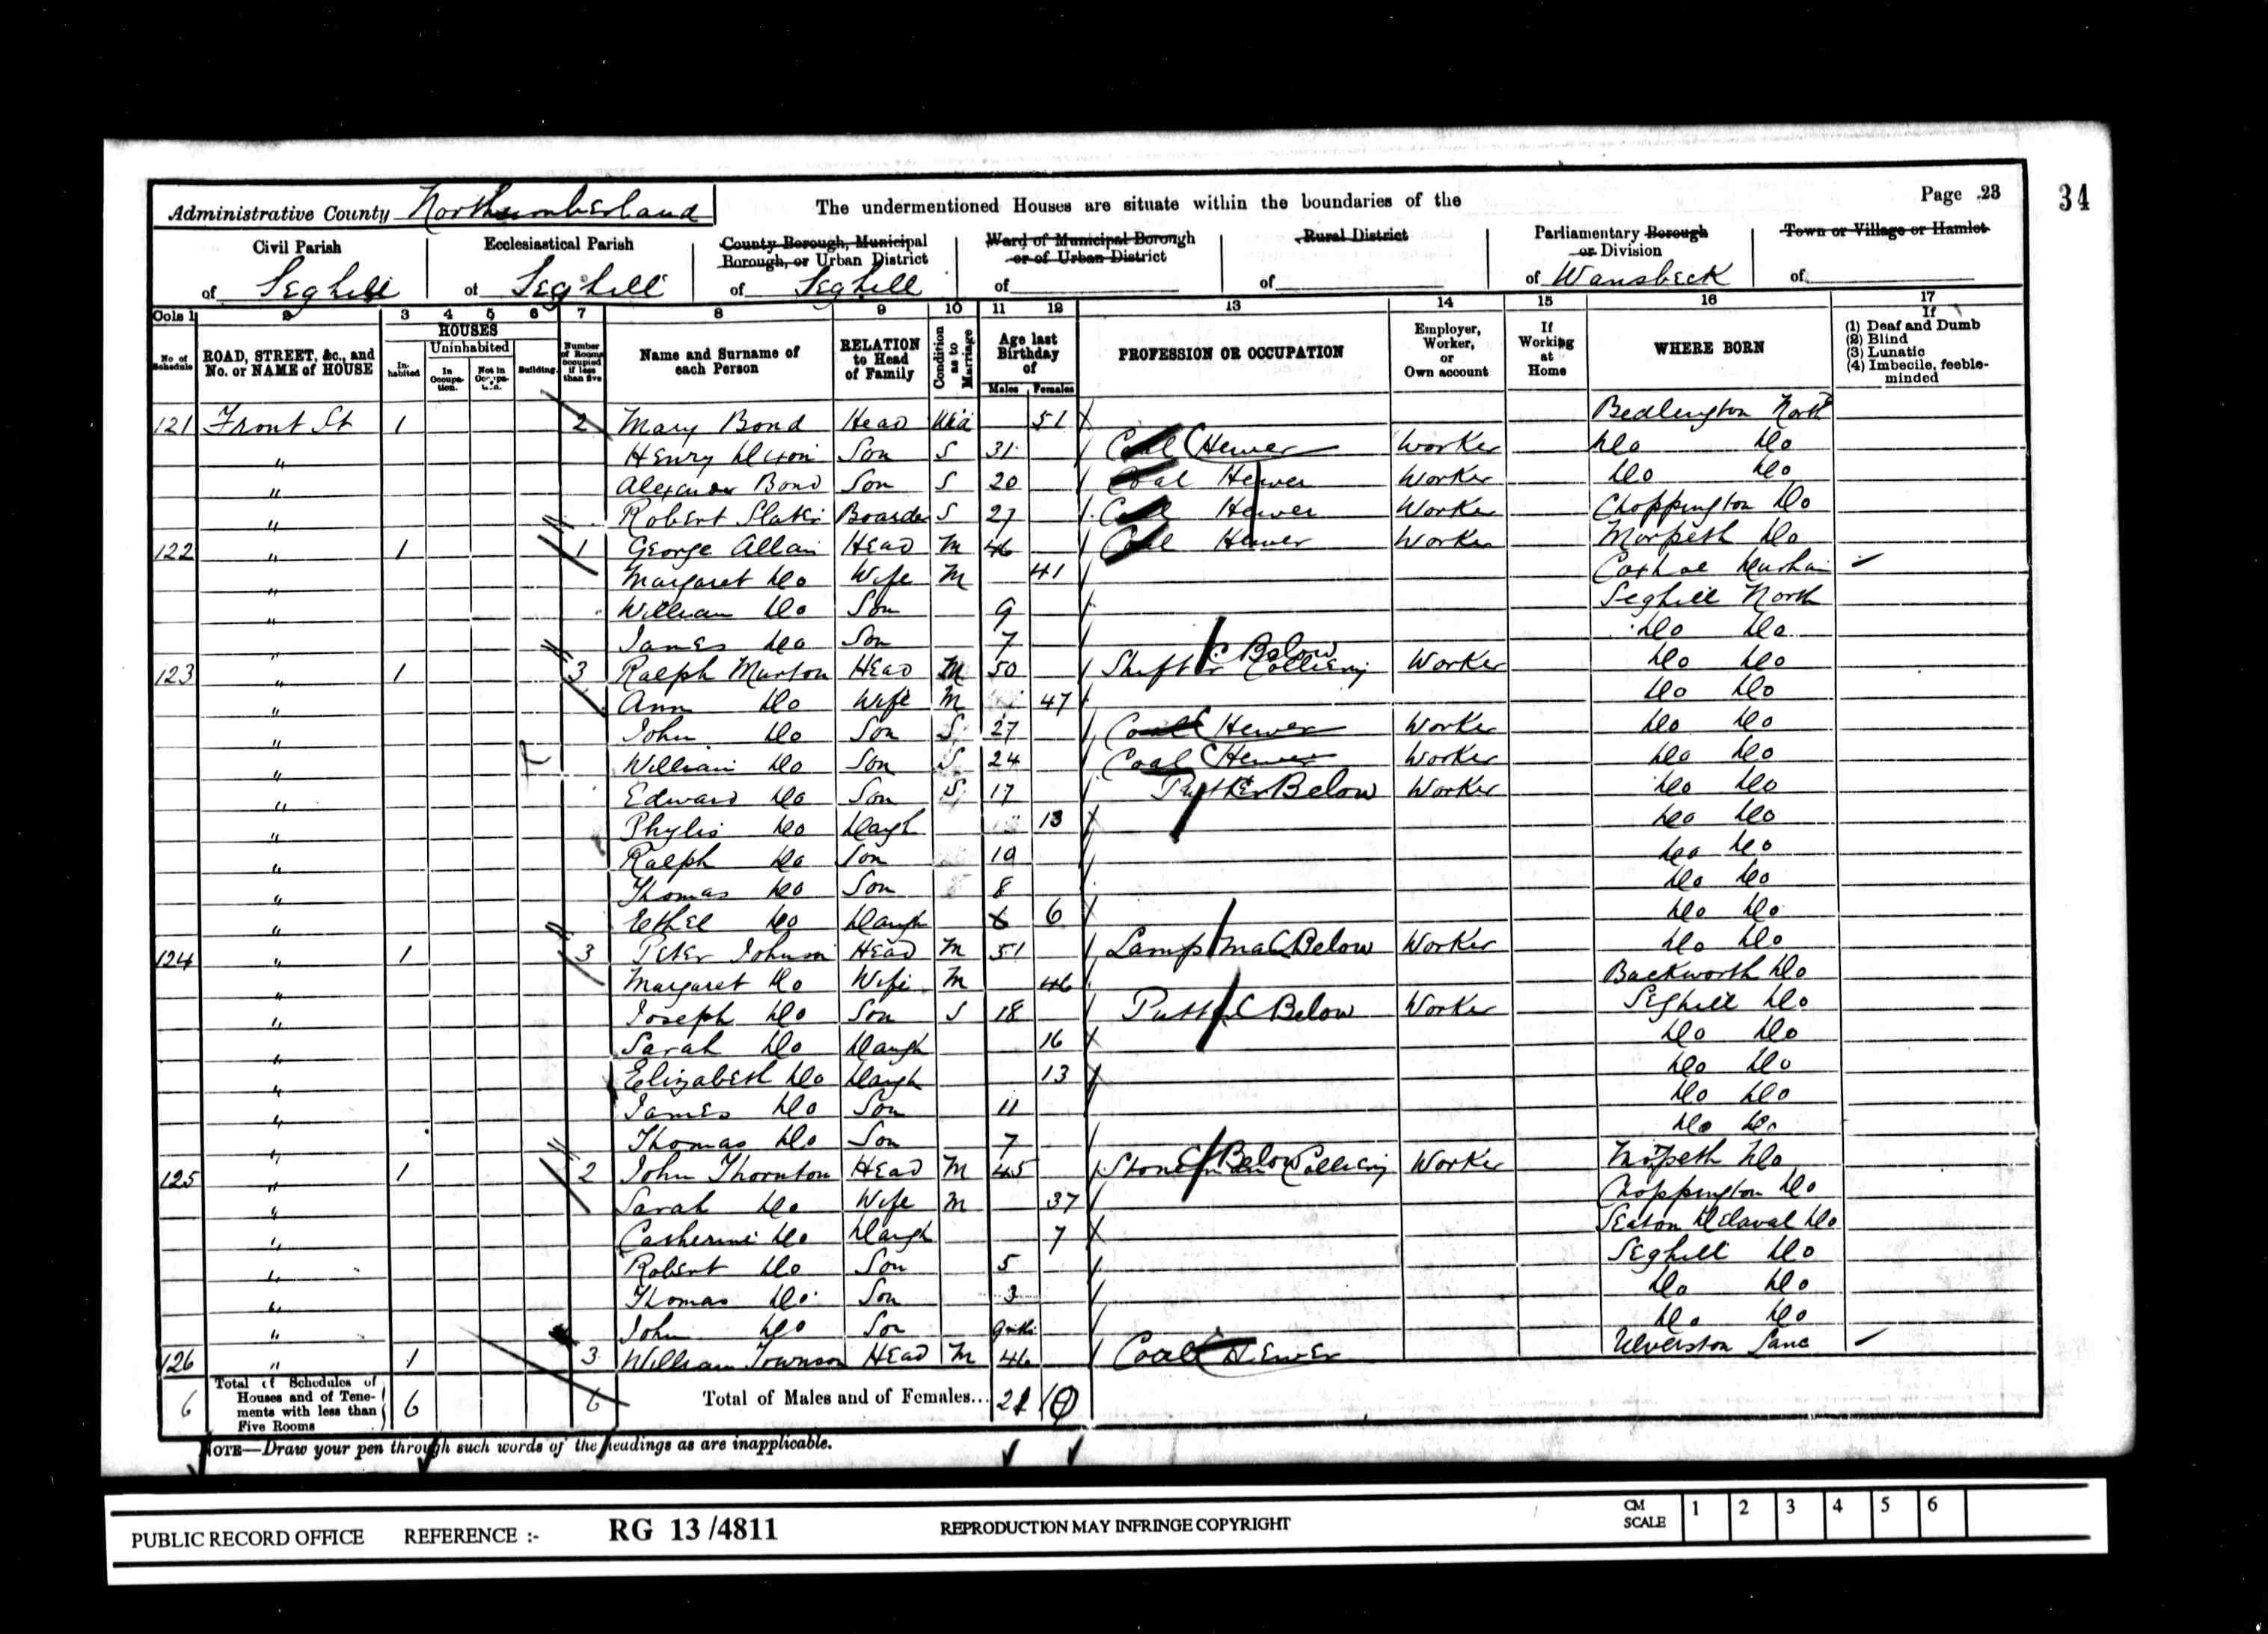 Administrative County Northumberland The undermentioned Houses are situate within the boundaries of the Page 23 34
Civil Parish Ecclesiastical Parish County Borough, Municipal Borough, or Urban District Ward of Municipal Borough or of Urban District Rural District Parliamentary Borough or Division Town or Village or Hamlet
of Seghill of Seghill of Seghill of of of Wansbeck of
Cols 1 2 3 4 5 6 7 8 9 10 11 12 13 14 15 16 17
No of Schedule ROAD, STREET, &c., and No. or NAME of HOUSE HOUSES Inhabited Uninhabited In Occupation. Not in Occupation. Building. Number of Rooms occupied if less than five Name and Surname of each Person RELATION to Head of Family Condition as to Marriage Age last Birthday of Males Females PROFESSION OR OCCUPATION Employer, Worker, or Own account If Working at Home WHERE BORN If (1) Deaf and Dumb (2) Blind (3) Lunatic (4) Imbecile, feeble-minded
121 Front St 1 2 Mary Bond Head Wid 51 Bedlington North
" Henry Dixon Son S 31 Coal Hewer Worker Do Do
" Alexander Bond Son S 20 Coal Hewer Worker Do Do
" Robert Slater Boarder S 27 Coal Hewer Worker Choppington Do
122 " 1 1 George Allan Head M 46 Coal Hewer Worker Morpeth Do
" Margaret Do Wife M 41 Coxhoe Durham
" William Do Son 9 Seghill North
" James Do Son 7 Do Do
123 " 1 3 Ralph Murton Head M 50 Shifter Colliery Below Worker Do Do
" Ann Do Wife M 47 Do Do
" John Do Son S 27 Coal Hewer Worker Do Do
" William Do Son S 24 Coal Hewer Worker Do Do
" Edward Do Son S 17 Putter Below Worker Do Do
" Phylis Do Daugh 13 Do Do
" Ralph Do Son 10 Do Do
" Thomas Do Son 8 Do Do
" Ethel Do Daugh 6 6 Do Do
124 " 1 3 Peter Johnson Head M 51 Lamp man Below Worker Do Do
" Margaret Do Wife M 46 Backworth Do
" Joseph Do Son S 18 Putter Below Worker Seghill Do
" Sarah Do Daugh 16 Do Do
" Elizabeth Do Daugh 13 Do Do
" James Do Son 11 Do Do
" Thomas Do Son 7 Do Do
125 " 1 2 John Thornton Head M 45 Stoneman Colliery Below Worker Morpeth Do
" Sarah Do Wife M 37 Choppington Do
" Catherine Do Daugh 7 Seaton Delaval Do
" Robert Do Son 5 Seghill Do
" Thomas Do Son 3 Do Do
" John Do Son Do Do
126 " 1 3 William Townson Head M 46 Coal Hewer Ulverston Lanc
6 Total of Schedules of Houses and of Tenements with less than Five Rooms 6 6 Total of Males and of Females... 21 10
NOTE—Draw your pen through such words of the headings as are inapplicable.
PUBLIC RECORD OFFICE REFERENCE :- RG 13/4811 REPRODUCTION MAY INFRINGE COPYRIGHT CM SCALE 1 2 3 4 5 6